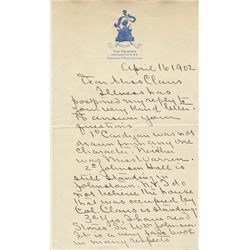 The Dresden
April 16 1902
Dear Miss Claus
Illness has
postponed my reply to
your very kind letter.
To answer your
questions
1st Cardigan was not
drawn from any one
character. Neither
was Miss Warren.
2nd Johnson Hall is
still standing in
Johnstown, N.Y. I do
not believe the house
that was occupied by
Col. Claus is standing
3rd Yes, I have read
Stone's Sir Wm Johnson.
It is a very good work
in many respects